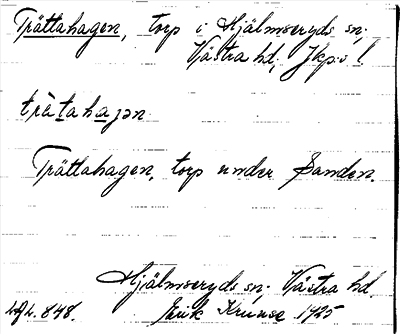 Trättahagen, torp i Hjälmseryds sn;
Västra hd; Jkp:s l
trätahagən
Trättahagen, torp under Sanden.
Hjälmseryds sn; Västra hd.
Erik Kruuse 1925